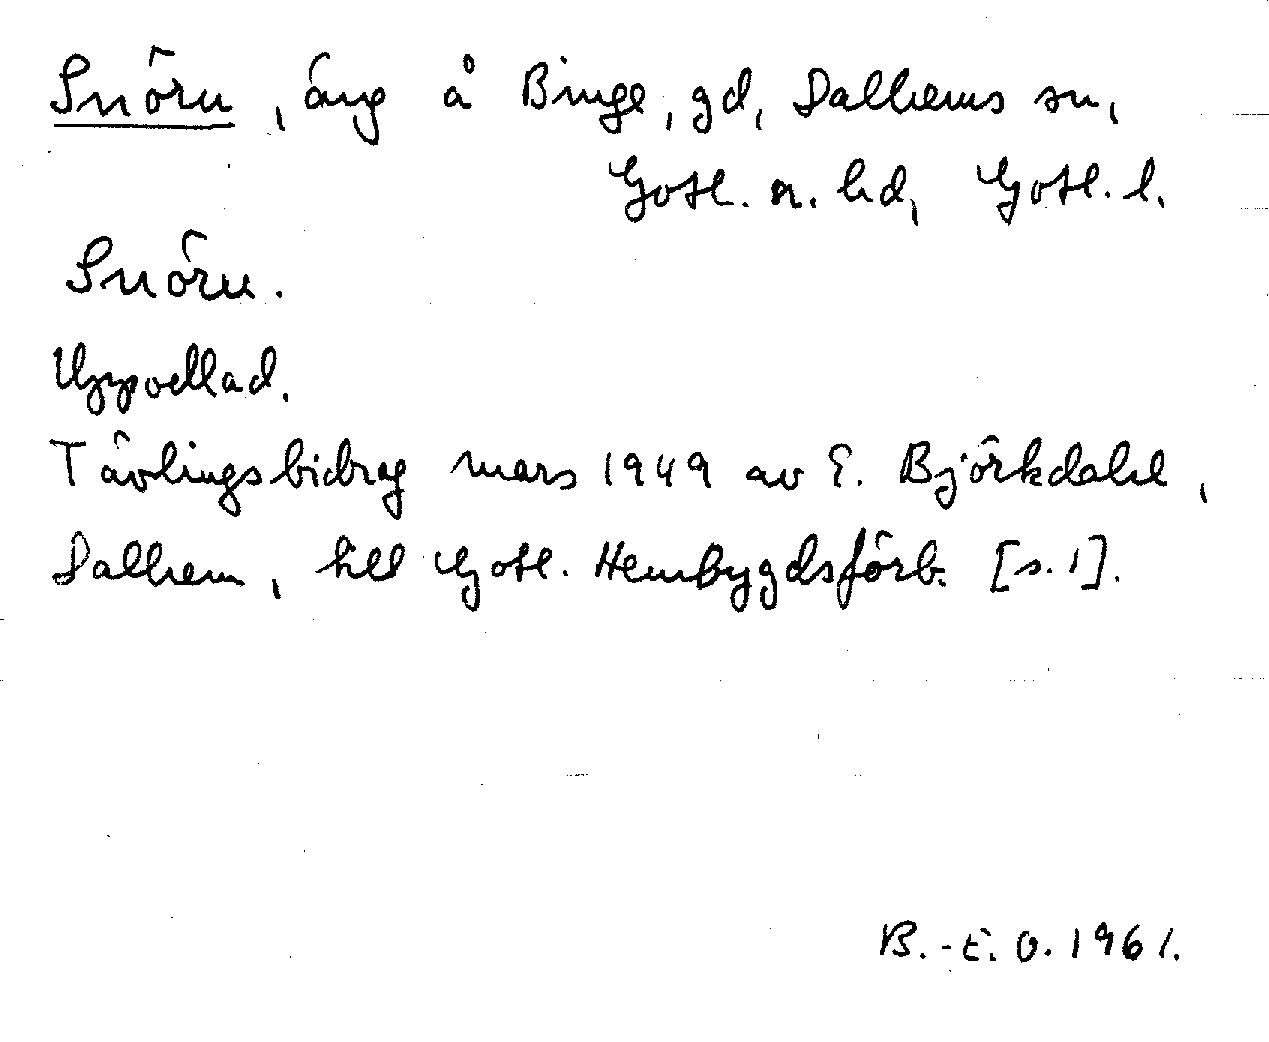 Snöru, äng å Binge, gd, Dalhems sn,
Gotl. n. hd, Gotl. l.
Snöru.
Uppodlad.
Tävlingsbidrag mars 1949 av E. Björkdahl,
Dalhem, till Gotl. Hembygdsförb. [s. 1].
B.-E. O. 1961.